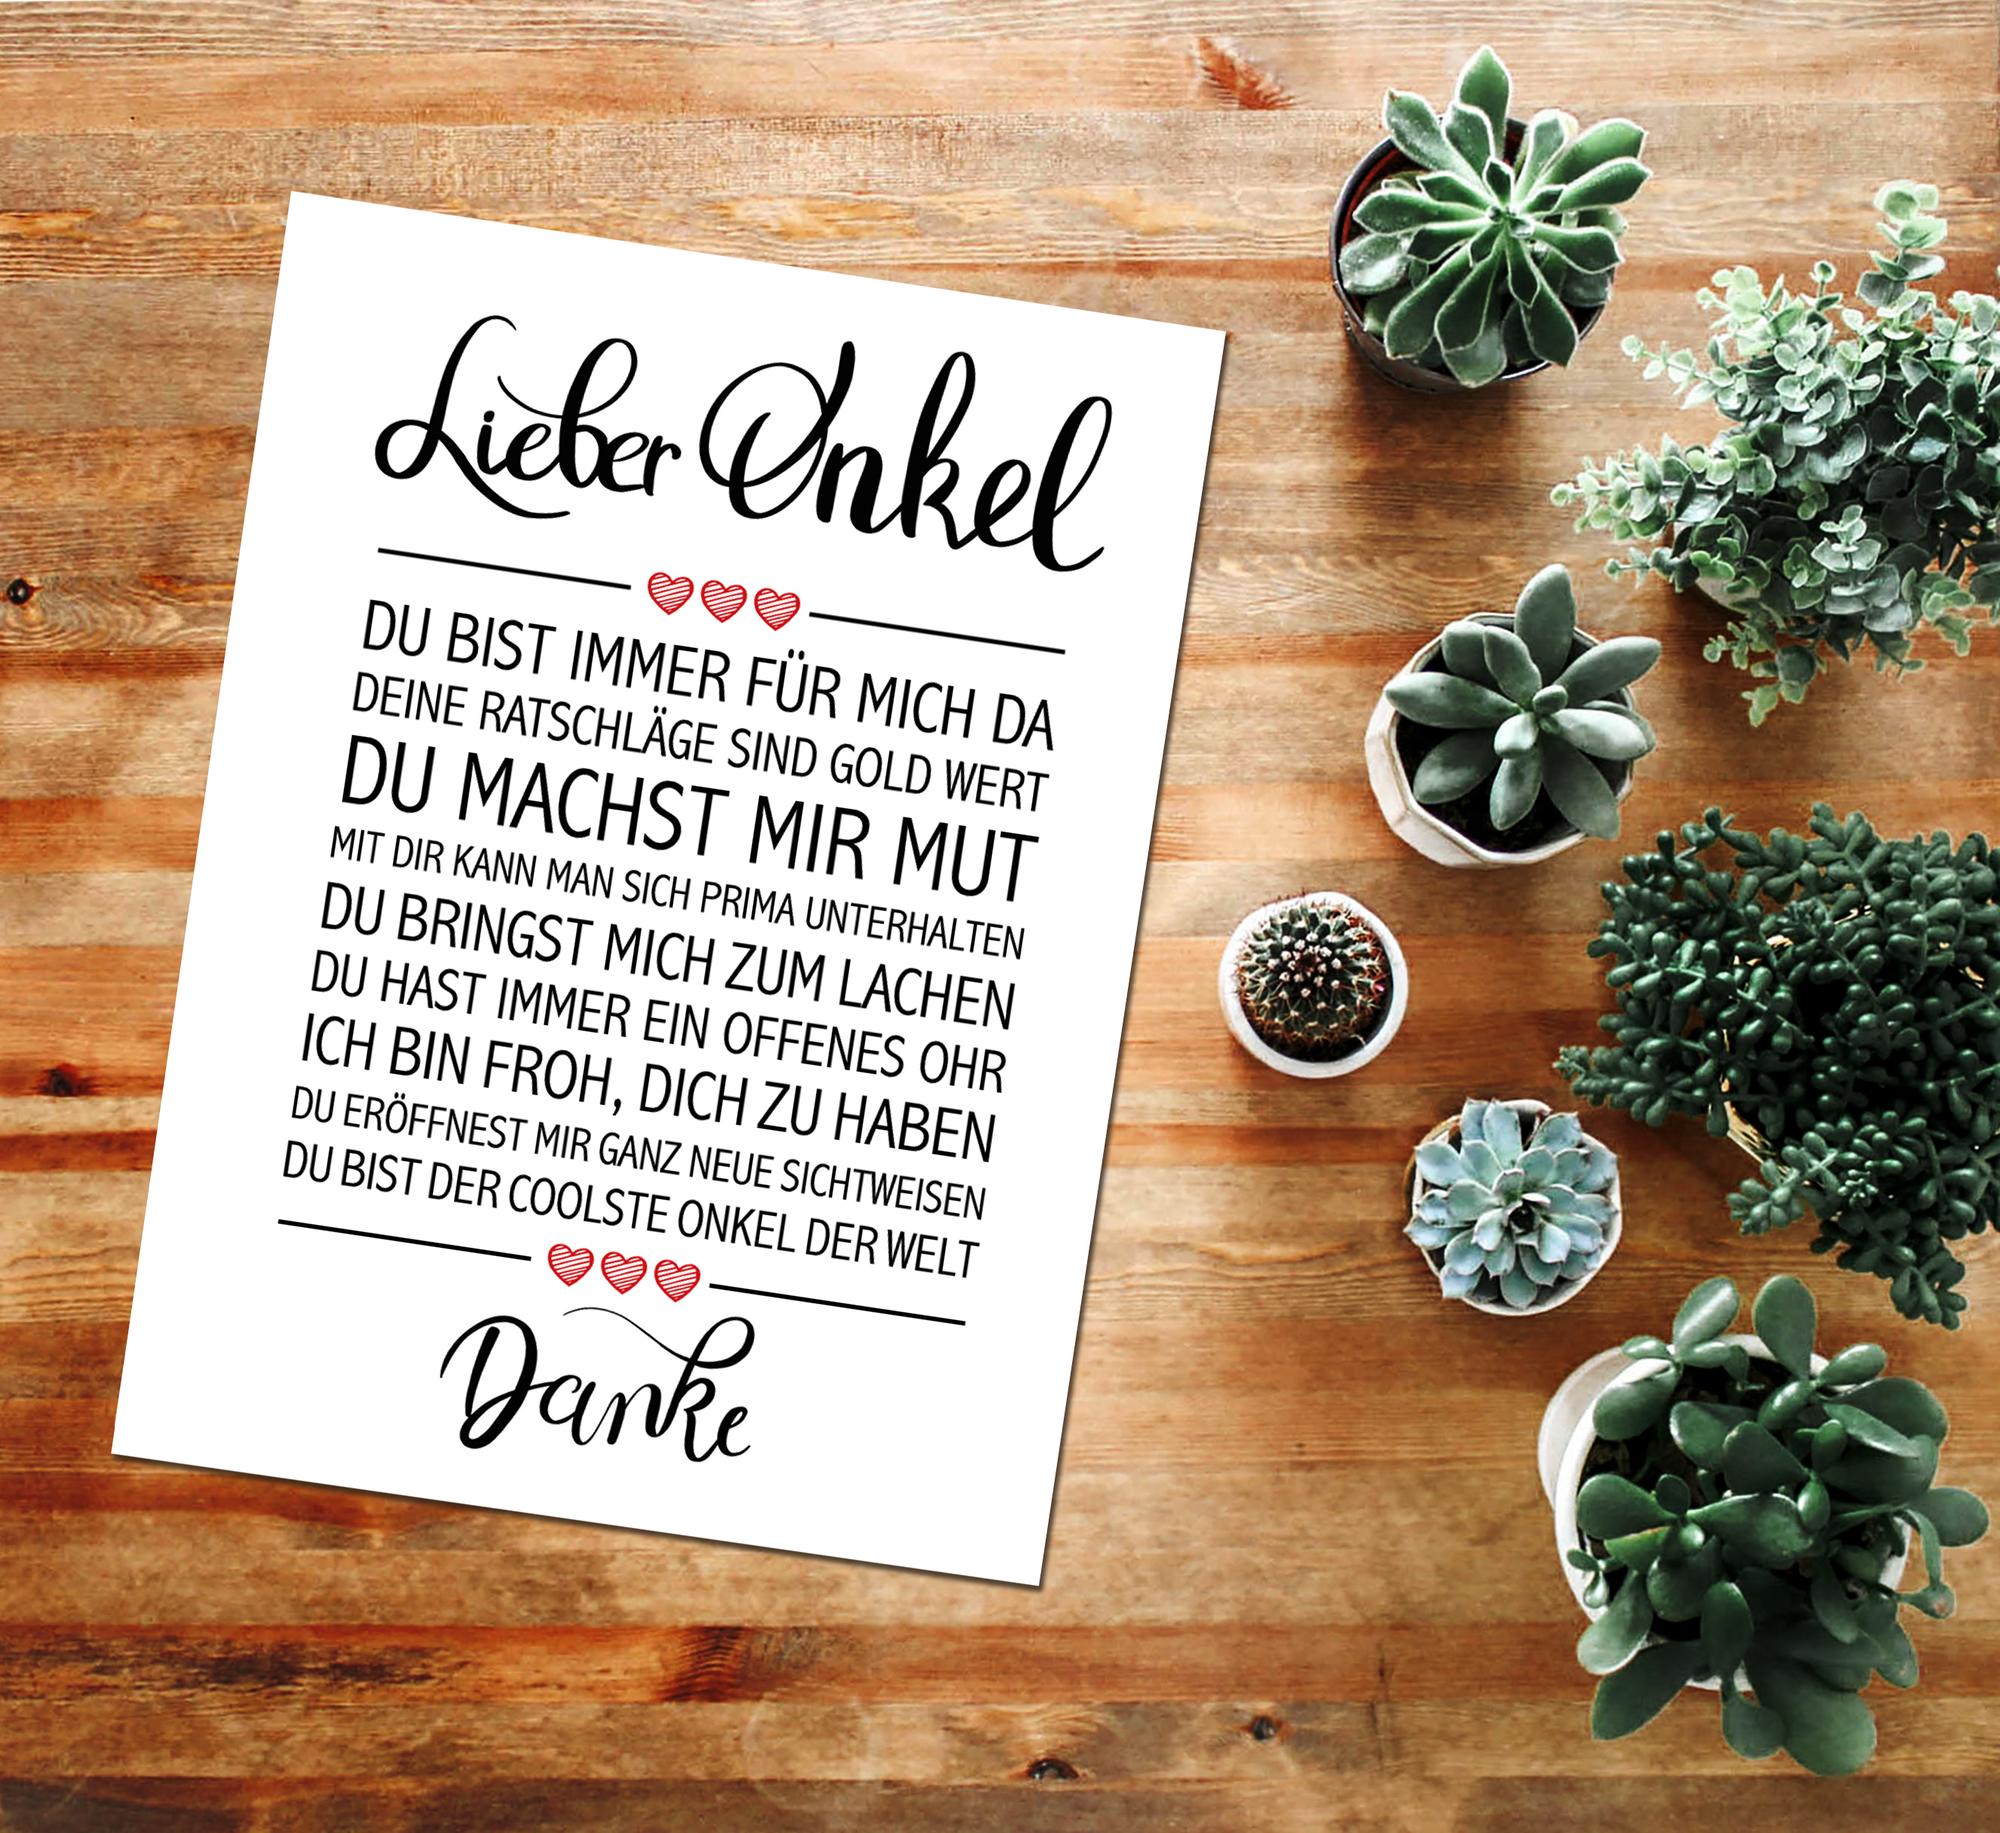 Lieber Onkel
DU BIST IMMER FÜR MICH DA
DEINE RATSCHLÄGE SIND GOLD WERT
DU MACHST MIR MUT
MIT DIR KANN MAN SICH PRIMA UNTERHALTEN
DU BRINGST MICH ZUM LACHEN
DU HAST IMMER EIN OFFENES OHR
ICH BIN FROH, DICH ZU HABEN
DU ERÖFFNEST MIR GANZ NEUE SICHTWEISEN
DU BIST DER COOLSTE ONKEL DER WELT
Danke